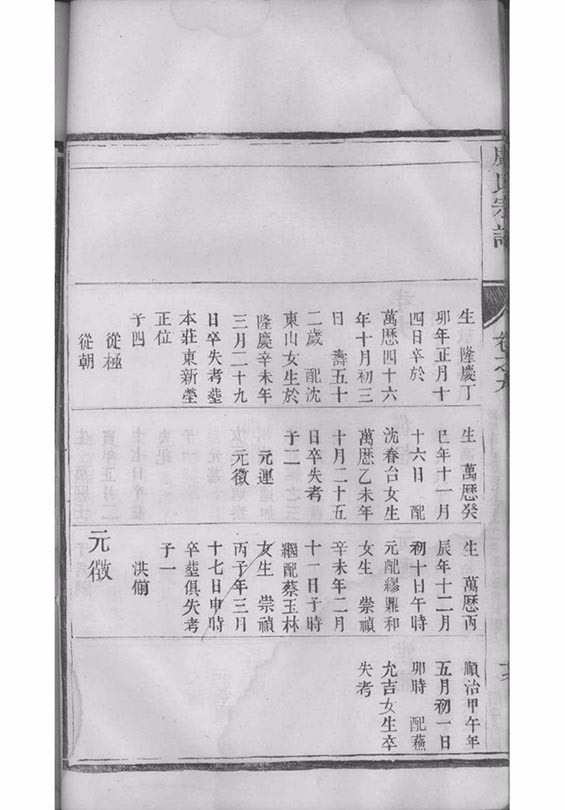 氏宗譜
卷之九
生 隆慶丁
卯年正月十
四日卒於
萬曆四十六
年十月初三
日 壽五十
二歲 配沈
東山女生於
隆慶辛未年
三月二十九
日卒失考塟
本莊東新塋
正位
子四
從極
從朝
生 萬曆癸
巳年十一月
十六日 配
沈春台女生
萬曆乙未年
十月二十五
日卒失考
子二
元運
元徵
生 萬曆丙
辰年十二月
初十日午時
元配繆鼎和
女生 崇禎
辛未年二月
十一日子時
繼配蔡玉林
女生 崇禎
丙子年三月
十七日申時
卒塟俱失考
子一
洪俑
元徵
順治甲午年
五月初一日
卯時 配蘓
允吉女生卒
失考